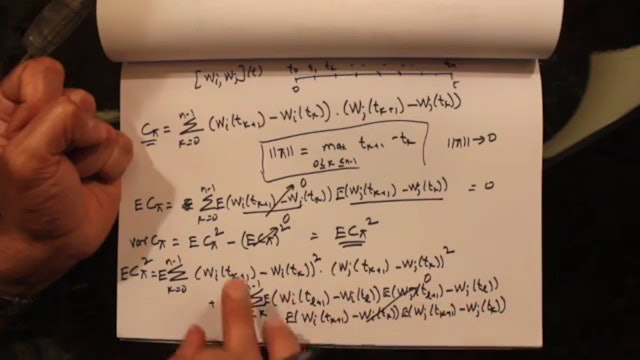 [Wi, Wj](t) t0 t1 t2 . . . . . tn
0 t
Cπ = n-1 Σ k=0 (Wi(tk+1) - Wi(tk)) . (Wj(tk+1) - Wj(tk))
||π|| = max 0≤k≤n-1 tk+1 - tk ||π|| → 0
E Cπ = n-1 Σ k=0 E(Wi(tk+1) - Wi(tk)) 0 E(Wj(tk+1) - Wj(tk)) = 0
var Cπ = E Cπ² - (E Cπ)² 0 = E Cπ²
E Cπ² = E n-1 Σ k=0 (Wi(tk+1) - Wi(tk))² . (Wj(tk+1) - Wj(tk))²
+ n-1 Σ E(Wi(tl+1) - Wi(tl)) E(Wj(tl+1) - Wj(tl)) 0
E(Wi(tk+1) - Wi(tk)) E(Wj(tk+1) - Wj(tk))